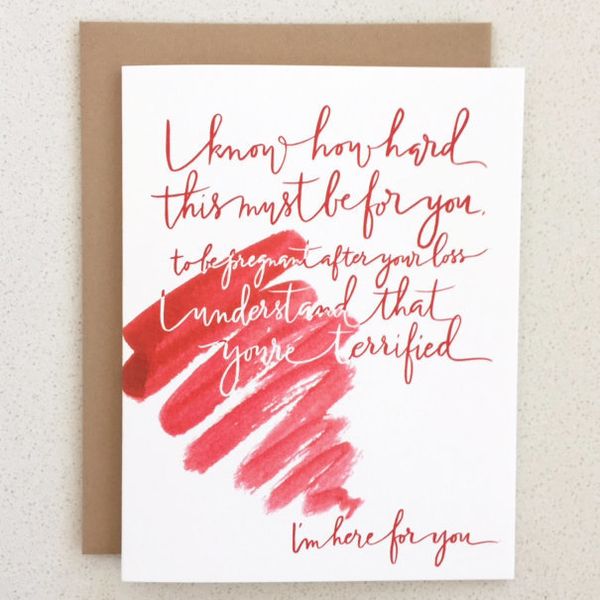 I know how hard
this must be for you.
to be pregnant after your loss
I understand that
you're terrified
I'm here for you